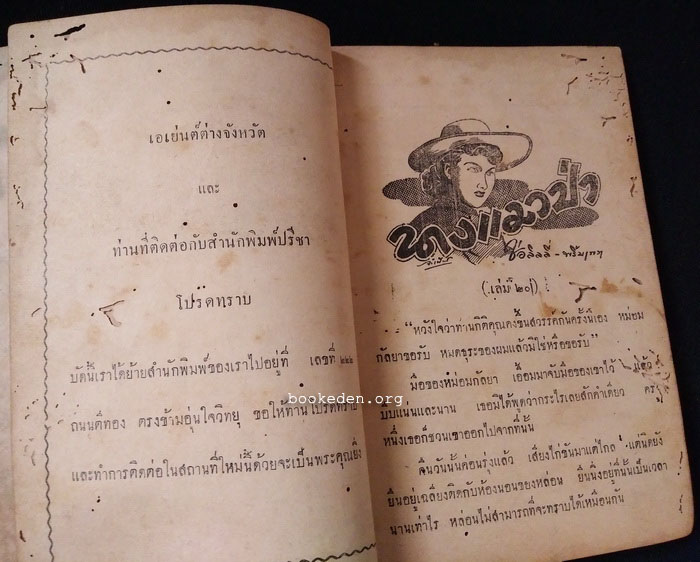 เอเย่นต์ต่างจังหวัด
และ
ท่านที่ติดต่อกับสำนักพิมพ์ปรีชา
โปรดทราบ
บัดนี้เราได้ย้ายสำนักพิมพ์ของเราไปอยู่ที่ เลขที่ ๒๒๒
ถนนตีทอง ตรงข้ามอุ่นใจวิทยุ ขอให้ท่านโปรดทราบ
และทำการติดต่อในสถานที่ใหม่นี้ด้วยจะเป็นพระคุณยิ่ง
bookeden.org
นางแมวป่า
(เล่ม ๒๐)
"หวังใจว่าท่านกิติคุณคงขึ้นสวรรค์กันครั้งนี้เอง หม่อม
กัลยาขอรับ หมดธุระของผมแล้วมิใช่หรือขอรับ"
มือของหม่อมกัลยา เอื้อมมาจับมือของเขาไว้ แล้ว
บีบแน่นและนาน เธอมิได้พูดว่ากระไรเลยสักคำเดียว
หนึ่งเธอก็ชวนเขาออกไปจากที่นั้น
จีนวันนั้นค่อนรุ่งแล้ว เสียงไก่ขันมาแต่ไกล แต่นิดยัง
ยืนอยู่เฉลียงติดกับห้องนอนของหล่อน ยืนนิ่งอยู่ที่นั้นเป็นเวลา
นานเท่าไร หล่อนไม่สามารถที่จะทราบได้เหมือนกัน